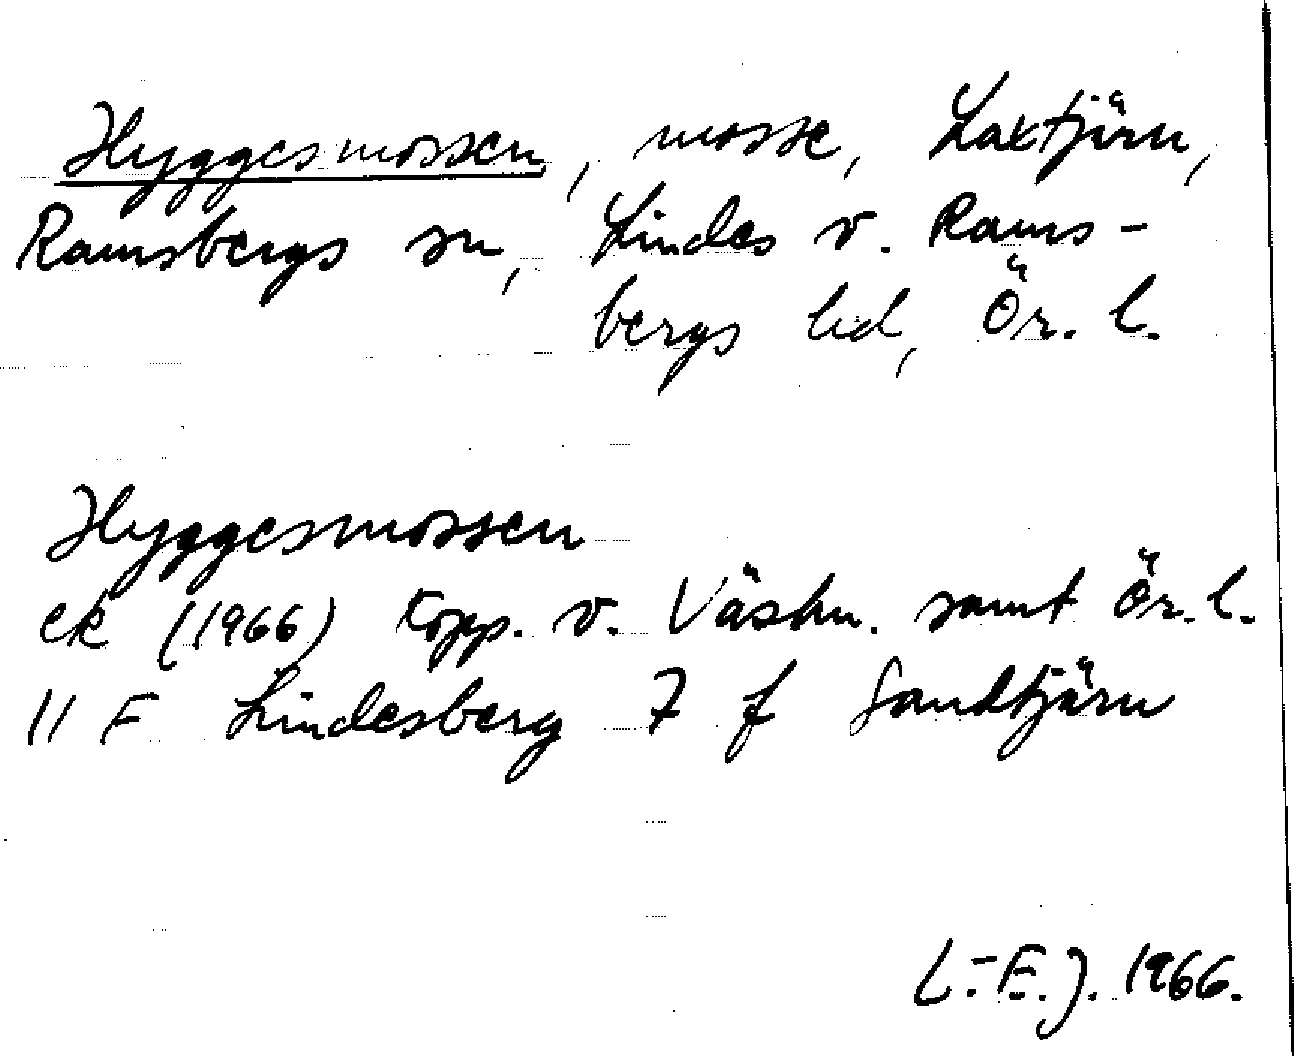 Hyggesmossen, mosse, Laxtjärn,
Ramsbergs sn, Lindes o. Rams-
bergs hd, Ör. l.
Hyggesmossen
ek (1966) topp. o. Västm. samt Ör. l.
11 F Lindesberg 7 f Sandtjärn
L.-E. J. 1966.